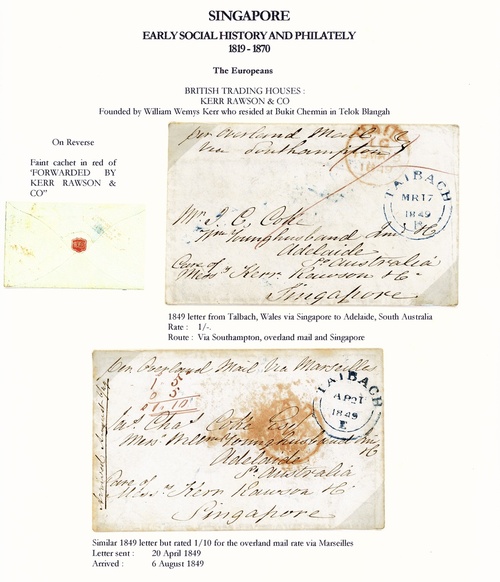 SINGAPORE
EARLY SOCIAL HISTORY AND PHILATELY
1819 - 1870
The Europeans
BRITISH TRADING HOUSES :
KERR RAWSON & CO
Founded by William Wemys Kerr who resided at Bukit Chermin in Telok Blangah
On Reverse
Faint cachet in red of
'FORWARDED BY
KERR RAWSON &
CO"
per Overland Mail
via Southampton
1849
TAIBACH
MR 17
1849
E
Mr. J. C. Coke
Wm Younghusband Jun & Co
Adelaide
So Australia
Care of
Messrs Kerr Rawson & Co
Singapore
1849 letter from Talbach, Wales via Singapore to Adelaide, South Australia
Rate : 1/-.
Route : Via Southampton, overland mail and Singapore
Per Overland Mail Via Marseilles
1 5
0 5
1. 10
TAIBACH
AP 21
1849
E
Jas. Chas. Coke Esqr
Messrs Willm Younghusband Jun
& Co
Adelaide
So. Australia
Care of
Messrs Kerr Rawson & Co
Singapore
Similar 1849 letter but rated 1/10 for the overland mail rate via Marseilles
Letter sent : 20 April 1849
Arrived : 6 August 1849